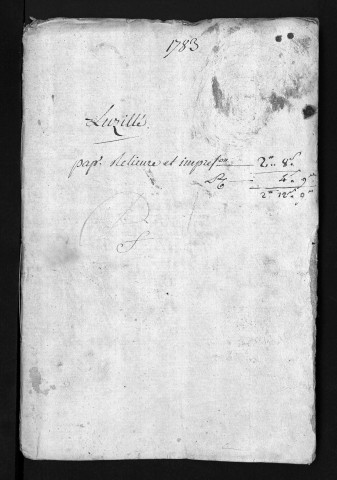 1783
Luzillé.
pap.r Relieure et impres.on 2.tt 8.s
4.s 9.d
2.tt 12.s 9.d